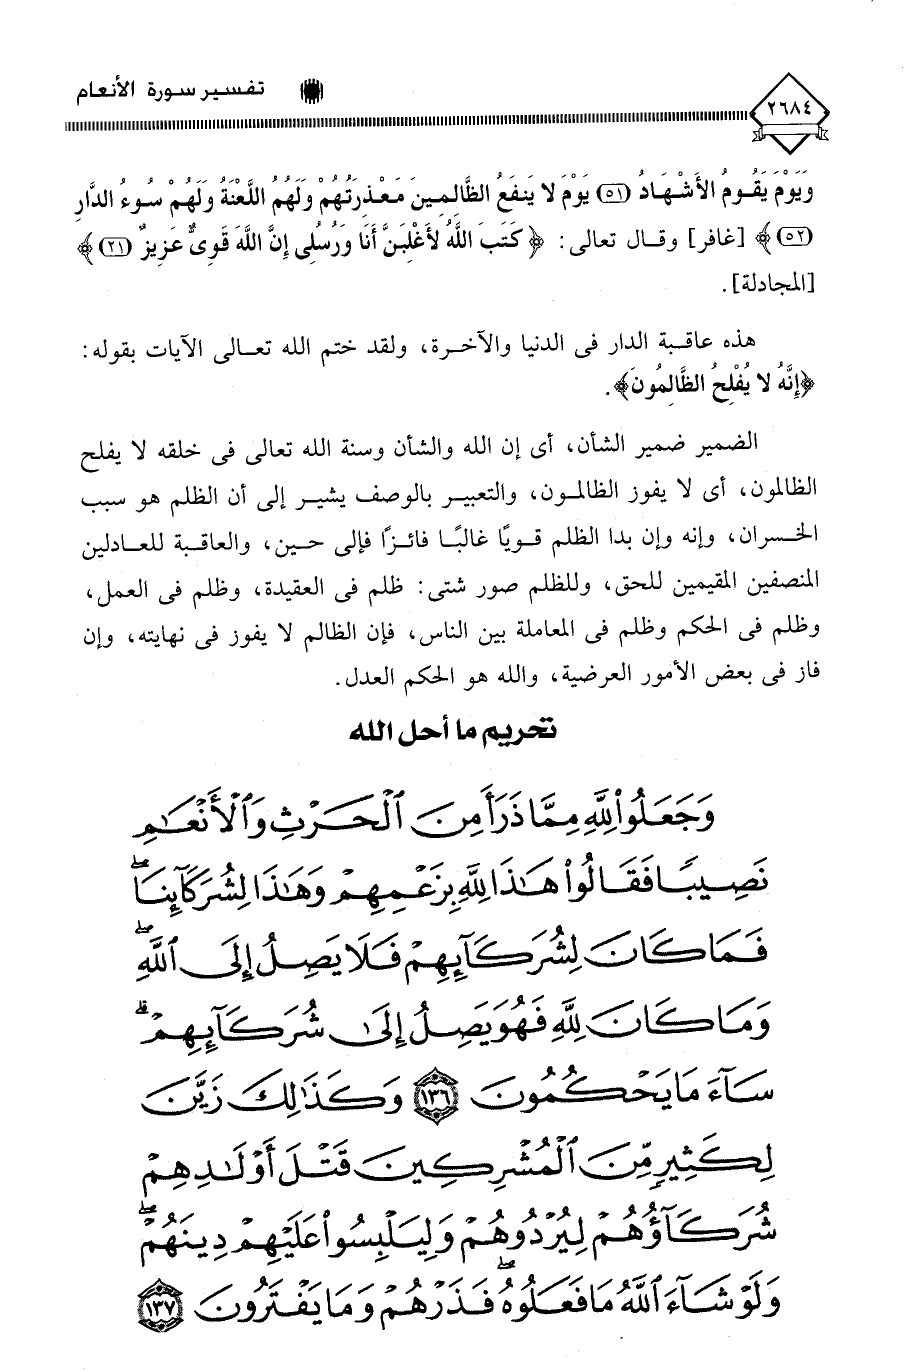 ٢٦٨٤
تفسير سورة الأنعام
وَيَوْمَ يَقُومُ الأَشْهَادُ (٥١) يَوْمَ لا يَنفَعُ الظَّالِمِينَ مَعْذِرَتُهُمْ وَلَهُمُ اللَّعْنَةُ وَلَهُمْ سُوءُ الدَّارِ
(٥٢)﴾ [غافر] وقال تعالى: ﴿كَتَبَ اللَّهُ لأَغْلِبَنَّ أَنَا وَرُسُلِي إِنَّ اللَّهَ قَوِيٌّ عَزِيزٌ (٢١)﴾
[المجادلة].
هذه عاقبة الدار فى الدنيا والآخرة، ولقد ختم الله تعالى الآيات بقوله:
﴿إِنَّهُ لا يُفْلِحُ الظَّالِمُونَ﴾.
الضمير ضمير الشأن، أى إن الله والشأن وسنة الله تعالى فى خلقه لا يفلح
الظالمون، أى لا يفوز الظالمون، والتعبير بالوصف يشير إلى أن الظلم هو سبب
الخسران، وإنه وإن بدا الظلم قويًا غالبًا فائزًا فإلى حين، والعاقبة للعادلين
المنصفين المقيمين للحق، وللظلم صور شتى: ظلم فى العقيدة، وظلم فى العمل،
وظلم فى الحكم وظلم فى المعاملة بين الناس، فإن الظالم لا يفوز فى نهايته، وإن
فاز فى بعض الأمور العرضية، والله هو الحكم العدل.
تحريم ما أحل الله
وَجَعَلُوا۟ لِلَّهِ مِمَّا ذَرَأَ مِنَ ٱلْحَرْثِ وَٱلْأَنْعَـٰمِ
نَصِيبًا فَقَالُوا۟ هَـٰذَا لِلَّهِ بِزَعْمِهِمْ وَهَـٰذَا لِشُرَكَآئِنَا ۖ
فَمَا كَانَ لِشُرَكَآئِهِمْ فَلَا يَصِلُ إِلَى ٱللَّهِ ۖ
وَمَا كَانَ لِلَّهِ فَهُوَ يَصِلُ إِلَىٰ شُرَكَآئِهِمْ ۗ
سَآءَ مَا يَحْكُمُونَ ١٣٦ وَكَذَٰلِكَ زَيَّنَ
لِكَثِيرٍ مِّنَ ٱلْمُشْرِكِينَ قَتْلَ أَوْلَـٰدِهِمْ
شُرَكَآؤُهُمْ لِيُرْدُوهُمْ وَلِيَلْبِسُوا۟ عَلَيْهِمْ دِينَهُمْ ۖ
وَلَوْ شَآءَ ٱللَّهُ مَا فَعَلُوهُ ۖ فَذَرْهُمْ وَمَا يَفْتَرُونَ ١٣٧